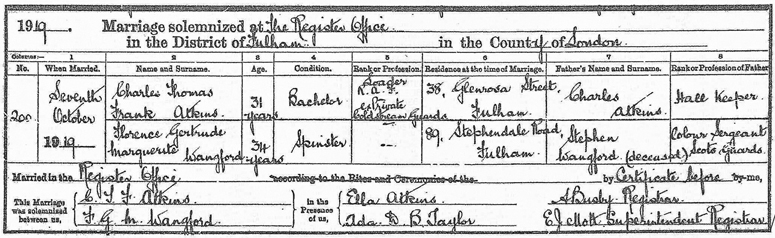 1919. Marriage solemnized at The Register Office
in the District of Fulham. in the County of London.
Columns:— 1 2 3 4 5 6 7 8
No. When Married. Name and Surname. Age. Condition. Rank or Profession. Residence at the time of Marriage. Father's Name and Surname. Rank or Profession of Father
200. Seventh October 1919 Charles Thomas Frank Atkins. 31 years Bachelor Loader R.A.F. Ex Private Coldstream Guards 38, Glenrosa Street, Fulham. Charles Atkins. Hall Keeper.
Florence Gertrude Marguerite Wangford. 34 years Spinster — 89, Stephendale Road, Fulham. Stephen Wangford (deceased) Colour Sergeant Scots Guards.
Married in the Register Office. according to the Rites and Ceremonies of the by Certificate before by me,
This Marriage was solemnized between us, C. T. F. Atkins. F. G. M. Wangford. in the Presence of us, Ella Atkins. Ada D. B. Taylor A Busby Registrar. E J Mott Superintendent Registrar